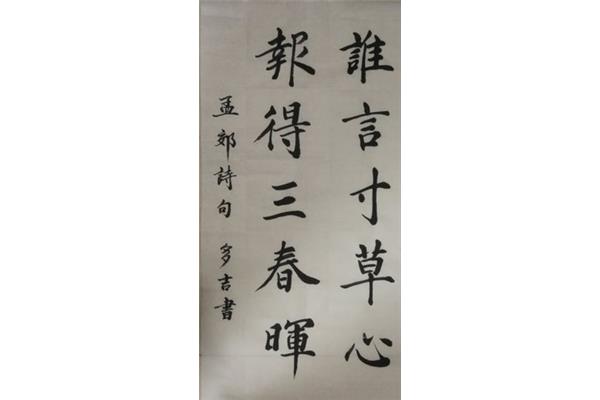 誰言寸草心
報得三春暉
孟郊詩句 多吉書